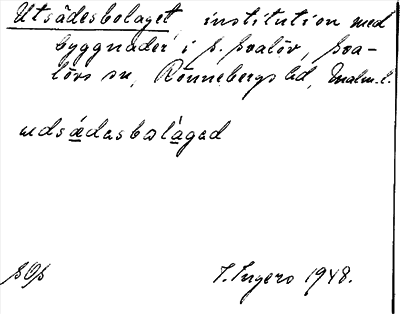 Utsädesbolaget, institution med
byggnader i s. Svalöv, Sva-
lövs sn, Rönnebergs hd, Malm. l.
udsädasbalágad
I. Ingers 1948.